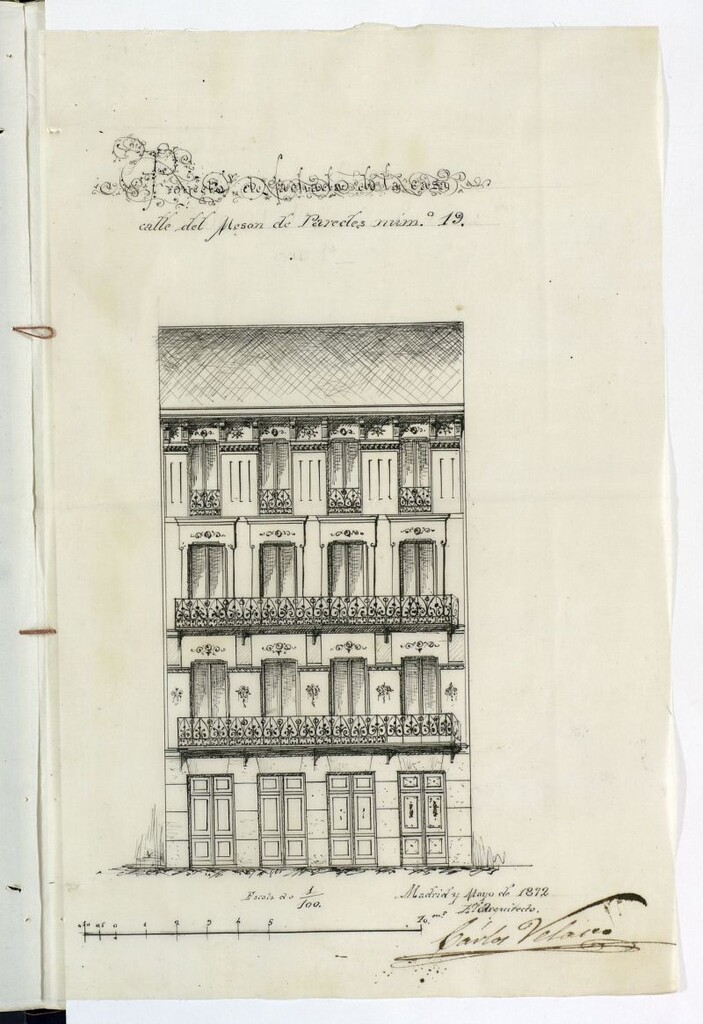 Proyecto de fachada de la casa
calle del Meson de Paredes núm.º 19.
Escala de 1/100.
Madrid y Mayo de 1872
El Arquitecto,
Carlos Velasco
0 1 2 3 4 5